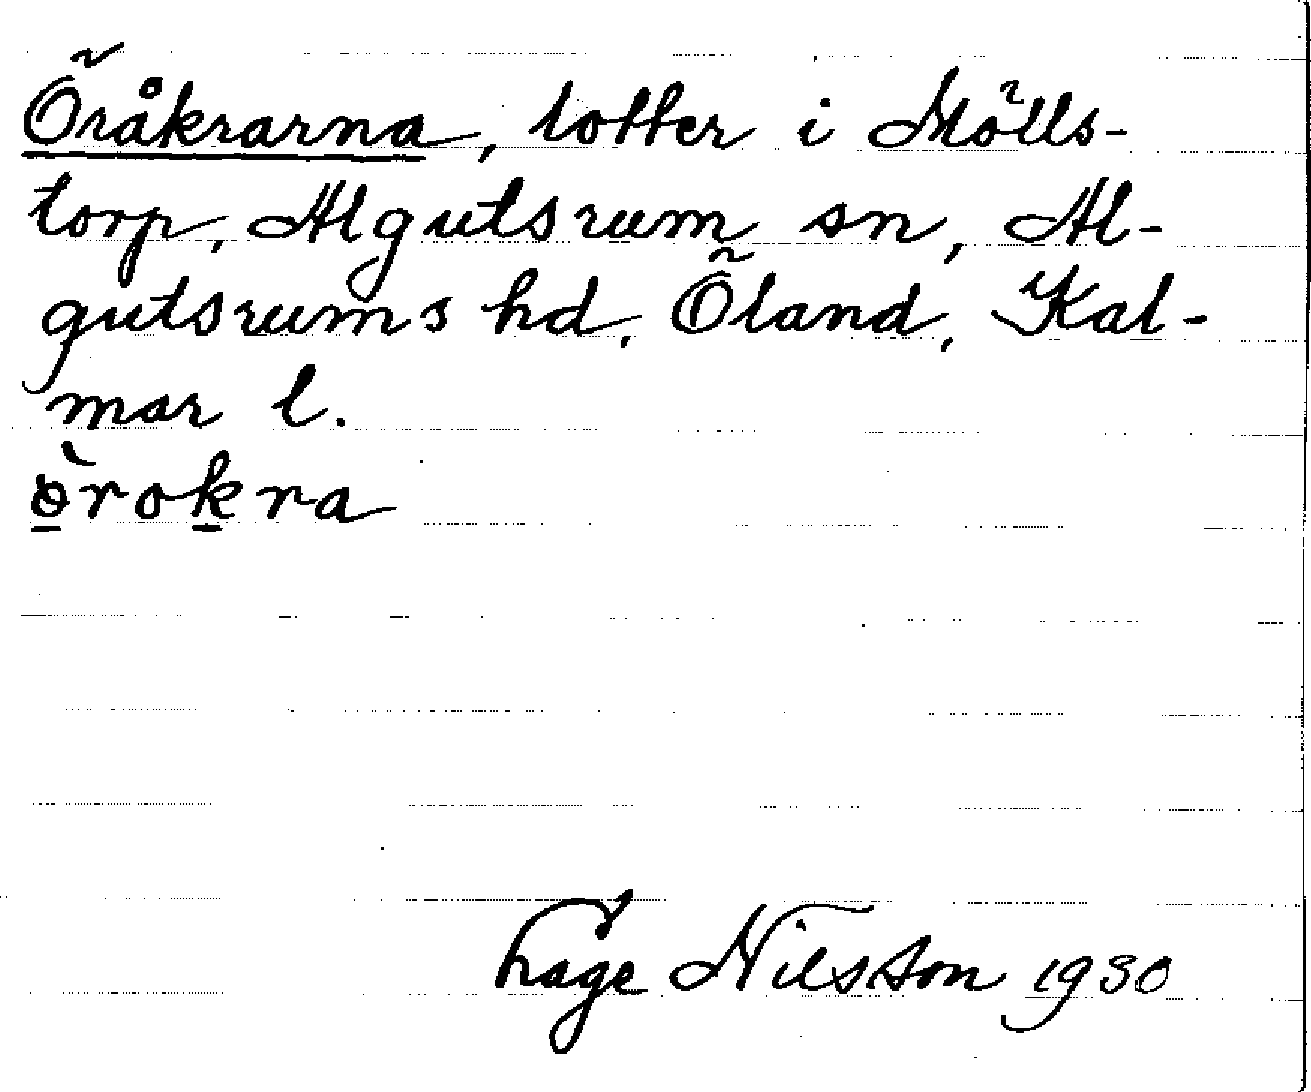 Öråkrarna, totter i Mölls-
torp, Algutsrum sn, Al-
gutsrums hd, Öland, Kal-
mar l.
ö̀rokra
Hage Nilsson 1930